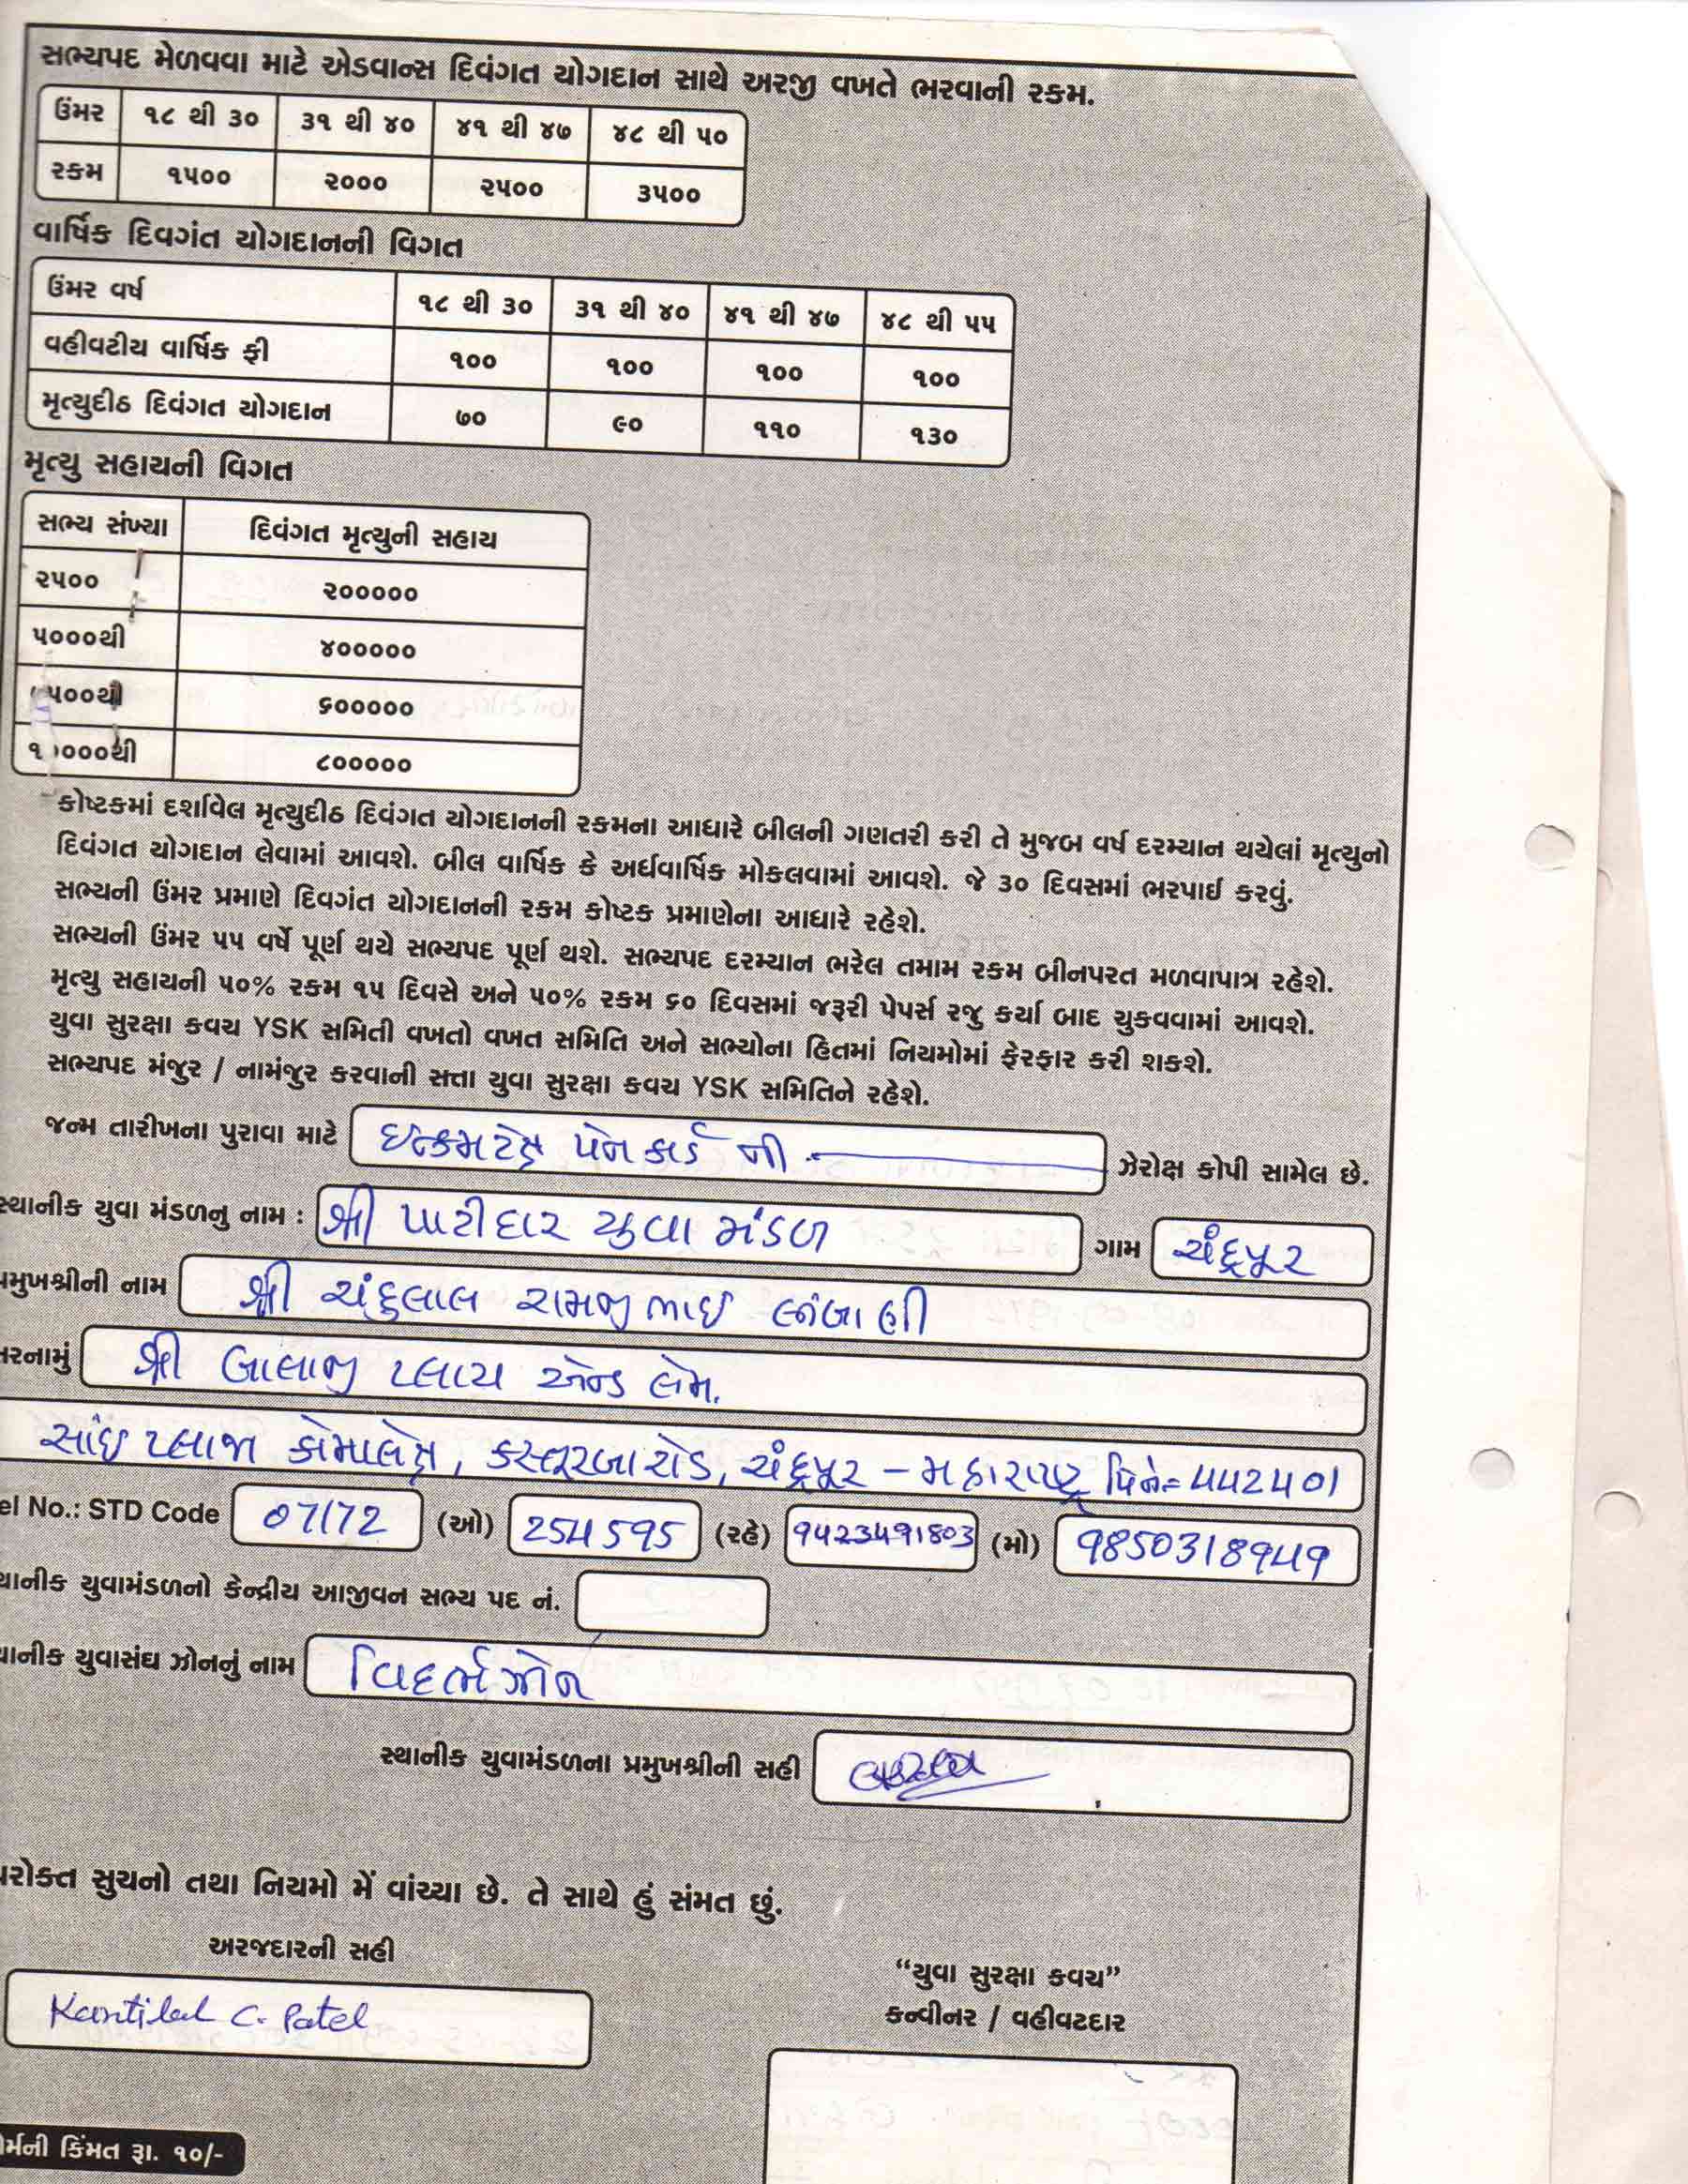 સભ્યપદ મેળવવા માટે એડવાન્સ દિવંગત યોગદાન સાથે અરજી વખતે ભરવાની રકમ.
ઉંમર ૧૮ થી ૩૦ ૩૧ થી ૪૦ ૪૧ થી ૪૭ ૪૮ થી ૫૦
રકમ ૧૫૦૦ ૨૦૦૦ ૨૫૦૦ ૩૫૦૦
વાર્ષિક દિવગંત યોગદાનની વિગત
ઉંમર વર્ષ ૧૮ થી ૩૦ ૩૧ થી ૪૦ ૪૧ થી ૪૭ ૪૮ થી ૫૫
વહીવટીય વાર્ષિક ફી ૧૦૦ ૧૦૦ ૧૦૦ ૧૦૦
મૃત્યુદીઠ દિવંગત યોગદાન ૭૦ ૯૦ ૧૧૦ ૧૩૦
મૃત્યુ સહાયની વિગત
સભ્ય સંખ્યા દિવંગત મૃત્યુની સહાય
૨૫૦૦ ૨૦૦૦૦૦
૫૦૦૦થી ૪૦૦૦૦૦
૫૦૦થી ૬૦૦૦૦૦
૧૦૦૦૦થી ૮૦૦૦૦૦
કોષ્ટકમાં દર્શાવેલ મૃત્યુદીઠ દિવંગત યોગદાનની રકમના આધારે બીલની ગણતરી કરી તે મુજબ વર્ષ દરમ્યાન થયેલાં મૃત્યુનો
દિવંગત યોગદાન લેવામાં આવશે. બીલ વાર્ષિક કે અર્ધવાર્ષિક મોકલવામાં આવશે. જે ૩૦ દિવસમાં ભરપાઈ કરવું.
સભ્યની ઉંમર પ્રમાણે દિવગંત યોગદાનની રકમ કોષ્ટક પ્રમાણેના આધારે રહેશે.
સભ્યની ઉંમર ૫૫ વર્ષે પૂર્ણ થયે સભ્યપદ પૂર્ણ થશે. સભ્યપદ દરમ્યાન ભરેલ તમામ રકમ બીનપરત મળવાપાત્ર રહેશે.
મૃત્યુ સહાયની ૫૦% રકમ ૧૫ દિવસે અને ૫૦% રકમ ૬૦ દિવસમાં જરૂરી પેપર્સ રજુ કર્યા બાદ ચુકવવામાં આવશે.
યુવા સુરક્ષા કવચ YSK સમિતી વખતો વખત સમિતિ અને સભ્યોના હિતમાં નિયમોમાં ફેરફાર કરી શકશે.
સભ્યપદ મંજુર / નામંજુર કરવાની સત્તા યુવા સુરક્ષા કવચ YSK સમિતિને રહેશે.
જન્મ તારીખના પુરાવા માટે ઇન્કમટેક્ષ પેનકાર્ડ ની ઝેરોક્ષ કોપી સામેલ છે.
સ્થાનીક યુવા મંડળનુ નામ : શ્રી પાટીદાર યુવા મંડળ ગામ ચંદ્રપૂર
પ્રમુખશ્રીની નામ શ્રી ચંદુલાલ રામજીભાઇ લીંબાણી
સરનામું શ્રી બાલાજી પ્લાય એન્ડ લેમ.
સાંઇ પ્લાજા કોમ્પલેક્ષ, કસ્તૂરબા રોડ, ચંદ્રપૂર – મહારાષ્ટ્ર પિન= 442401
el No.: STD Code 07172 (ઓ) 254595 (રહે) 9423491803 (મો) 9850318949
થાનીક યુવામંડળનો કેન્દ્રીય આજીવન સભ્ય પદ નં.
થાનીક યુવાસંઘ ઝોનનું નામ વિદર્ભ ઝોન
સ્થાનીક યુવામંડળના પ્રમુખશ્રીની સહી
પરોક્ત સુચનો તથા નિયમો મેં વાંચ્યા છે. તે સાથે હું સંમત છું.
અરજદારની સહી
Kantilal C. Patel
“યુવા સુરક્ષા કવચ”
કન્વીનર / વહીવટદાર
ોર્મની કિંમત રૂા. ૧૦/-